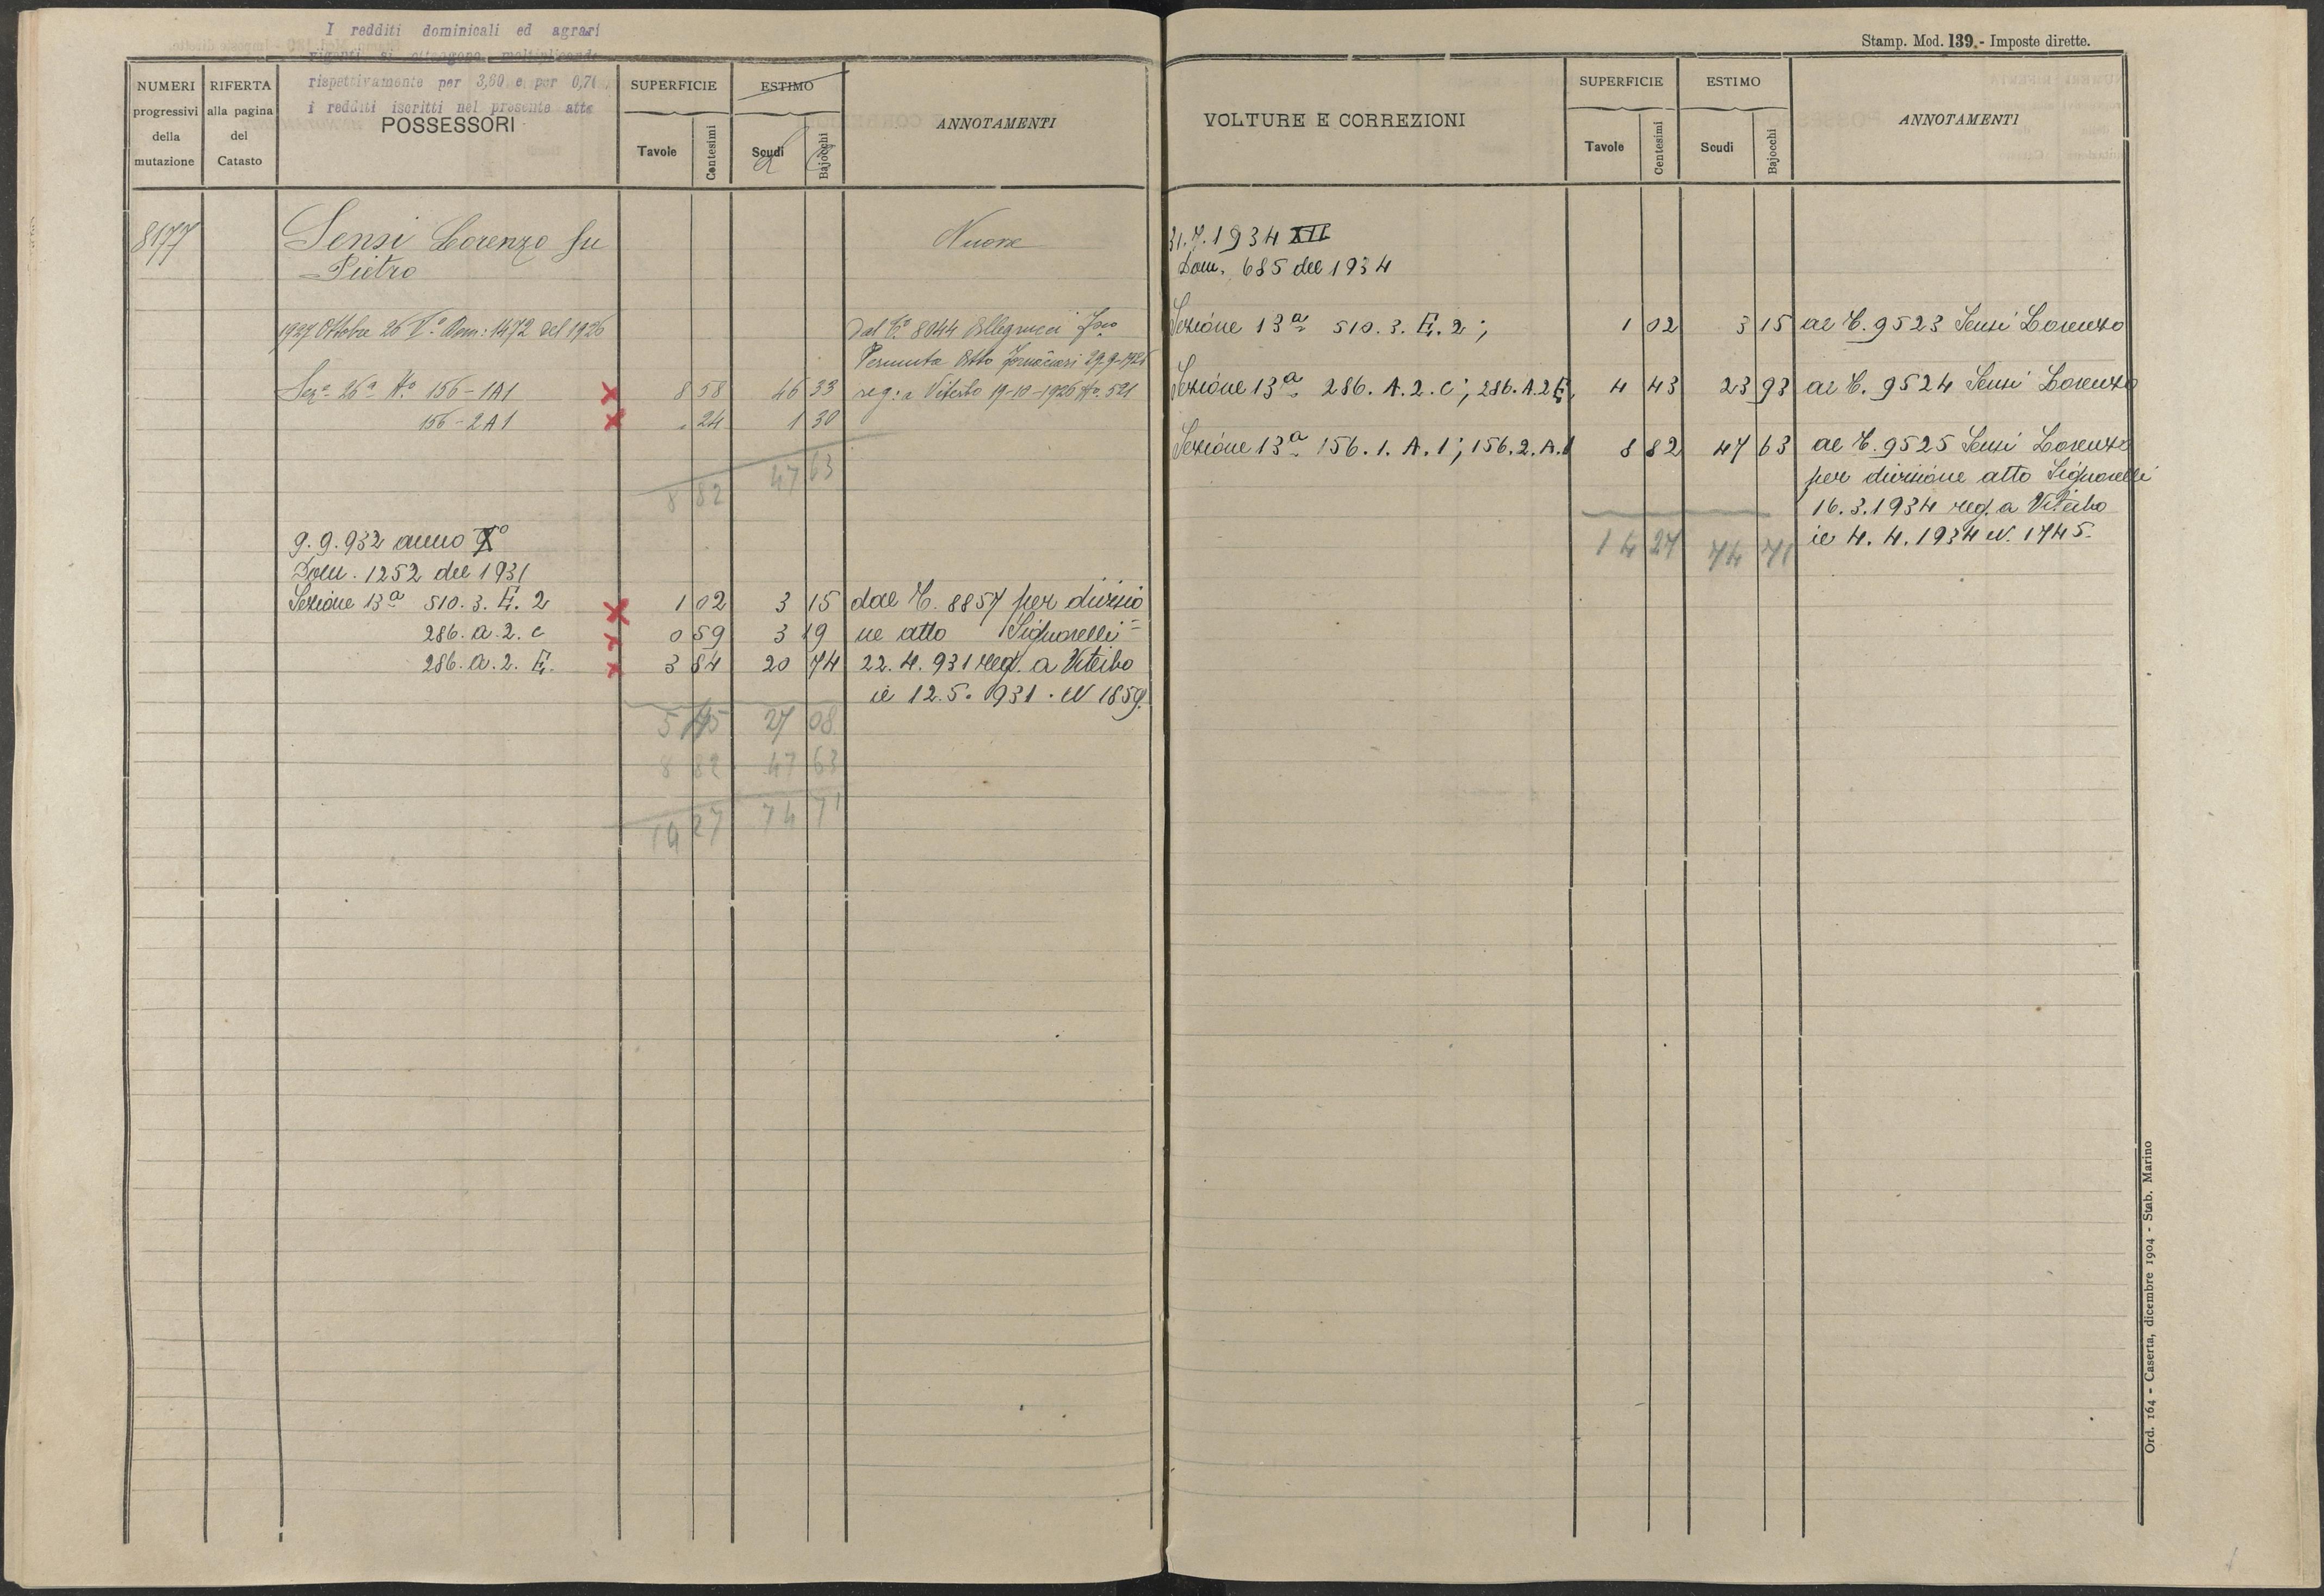 I redditi dominicali ed agrari
vigenti si ottengono moltiplicando
rispettivamente per 3,60 e per 0,71
i redditi iscritti nel presente atto
NUMERI progressivi della mutazione
RIFERTA alla pagina del Catasto
POSSESSORI
SUPERFICIE
Tavole
Centesimi
ESTIMO
Scudi
Bajocchi
ANNOTAMENTI
8177
Sensi Lorenzo fu
Pietro
Nuova
1927 Ottobre 26 V.° Dom: 1472 del 1926
Dal C.° 8044 Allegrucci
Permuta Atto 29-9-1926
Sez.e 26a N.° 156-1A1 X 8 58 46 33 reg: a Viterbo 19-10-1926 N.° 521
156-2A1 X . 24 1 30
8 82 47 63
9.9.932 anno X°
Dom. 1252 del 1931
Sezione 13a 510.3.E.2 X 1 02 3 15 dal C. 8857 per divisio
286.a.2.c X 0 59 3 19 ne atto Signorelli
286.a.2.E. X 3 84 20 74 22.4.931 reg. a Viterbo
il 12.5.931. N 1859.
5 45 27 08
8 82 47 63
14 27 74 71
Stamp. Mod. 139.- Imposte dirette.
VOLTURE E CORREZIONI
SUPERFICIE
Tavole
Centesimi
ESTIMO
Scudi
Bajocchi
ANNOTAMENTI
31.7.1934 XII
Dom. 685 del 1934
Sezione 13a 510.3.E.2; 1 02 3 15 al C. 9523 Sensi Lorenzo
Sezione 13a 286.A.2.c; 286.A.2E. 4 43 23 93 al C. 9524 Sensi Lorenzo
Sezione 13a 156.1.A.1; 156.2.A.1 8 82 47 63 al C. 9525 Sensi Lorenzo
per divisione atto Signorelli
16.3.1934 reg. a Viterbo
14 27 74 71 il 4.4.1934 N. 1745.
Ord. 164 - Caserta, dicembre 1904 - Stab. Marino